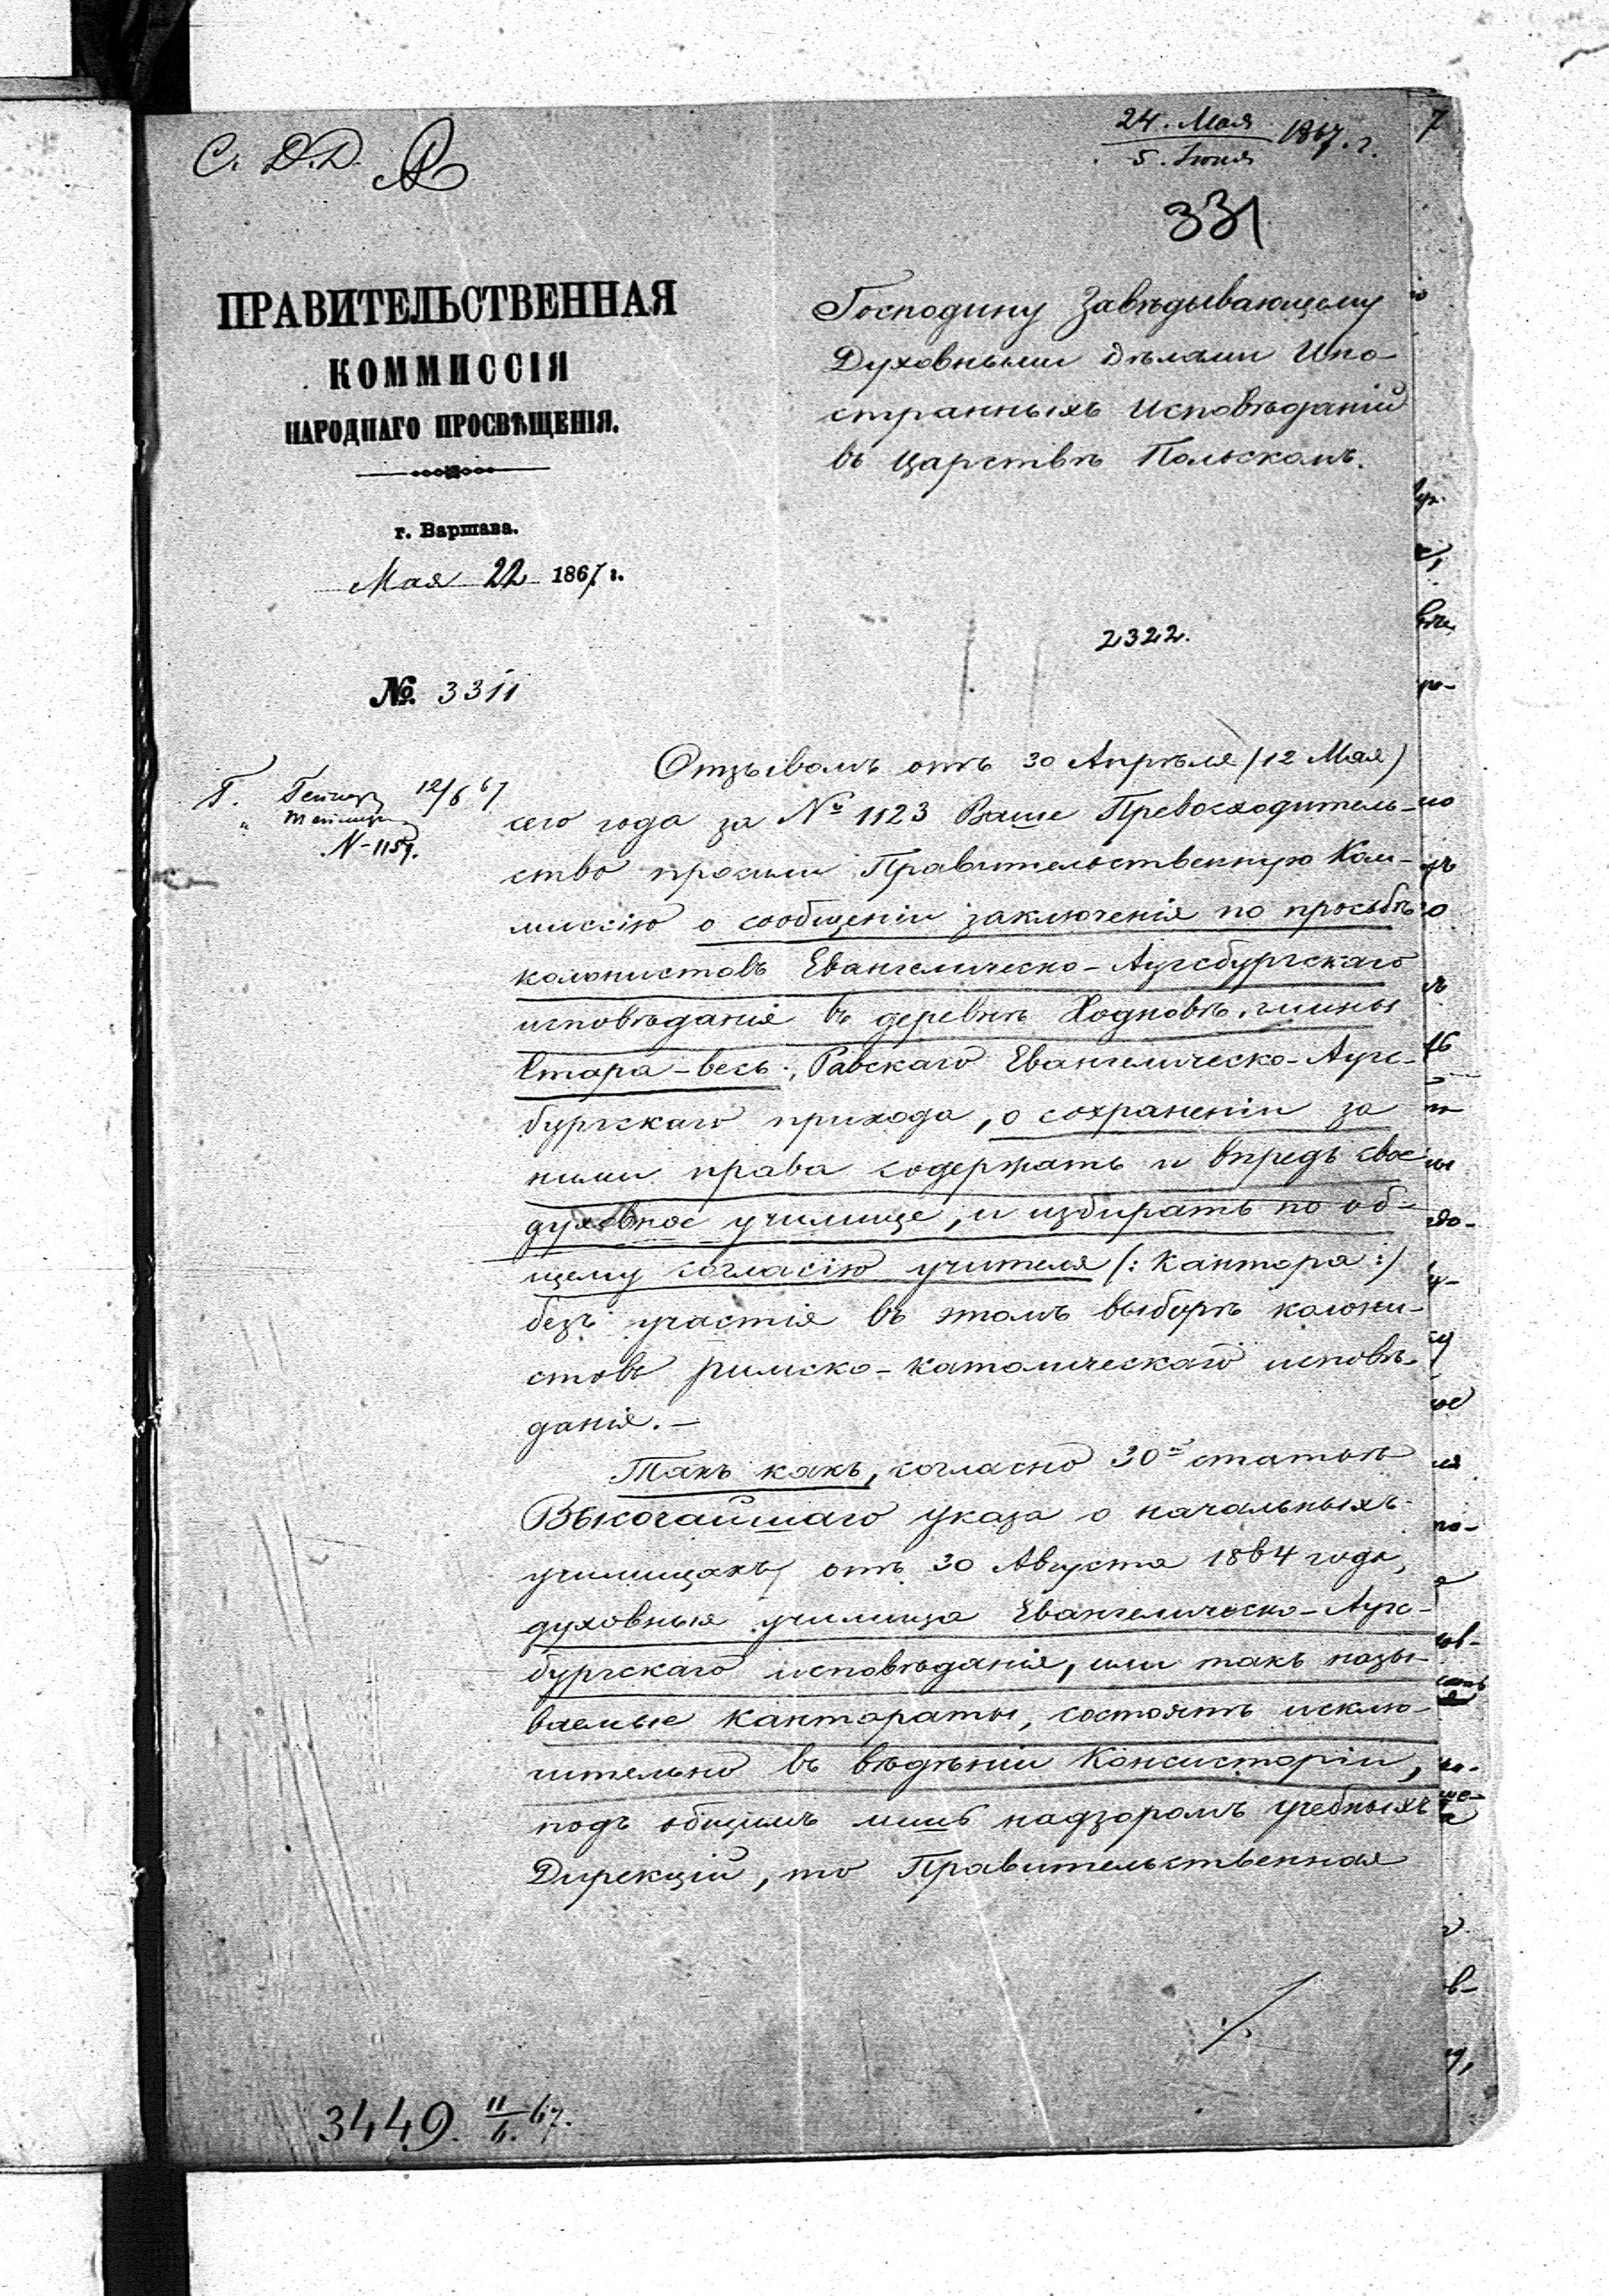 С. Д. Д.
24. Мая
5. Іюня
1867. г.
7
331
ПРАВИТЕЛЬСТВЕННАЯ
КОММИССІЯ
НАРОДНАГО ПРОСВѢЩЕНІЯ.
г. Варшава.
Мая 22 1867 г.
№ 3311
Господину Завѣдывающему
Духовными дѣлами Ино-
странныхъ Исповѣданій
въ Царствѣ Польскомъ.
2322.
Г. 12/6 67
N-1159.
Отзывомъ отъ 30 Апрѣля (12 Мая)
сего года за № 1123 Ваше Превосходитель-
ство просили Правительственную Ком-
миссію о сообщеніи заключенія по просьбѣ
колонистовъ Евангелическо-Аугсбургскаго
исповѣданія въ деревнѣ Ходновѣ, гмины
Стара-весь, Равскаго Евангелическо-Аугс-
бургскаго прихода, о сохраненіи за
ними права содержать и впредь свое
духовное училище, и избирать по об-
щему согласію учителя (: Кантора :)
безъ участія въ этомъ выборѣ колони-
стовъ римско-католическаго исповѣ-
данія.-
Такъ какъ, согласно 30й статьѣ
Высочайшаго указа о начальныхъ
училищахъ, отъ 30 Августа 1864 года,
духовныя училища Евангелическо-Аугс-
бургскаго исповѣданія, или такъ назы-
ваемые Кантораты, состоятъ исклю-
чительно въ вѣдѣніи Консисторіи,
подъ общимъ лишь надзоромъ учебныхъ
Дирекцій, то Правительственная
./.
3449. 11/6. 67.